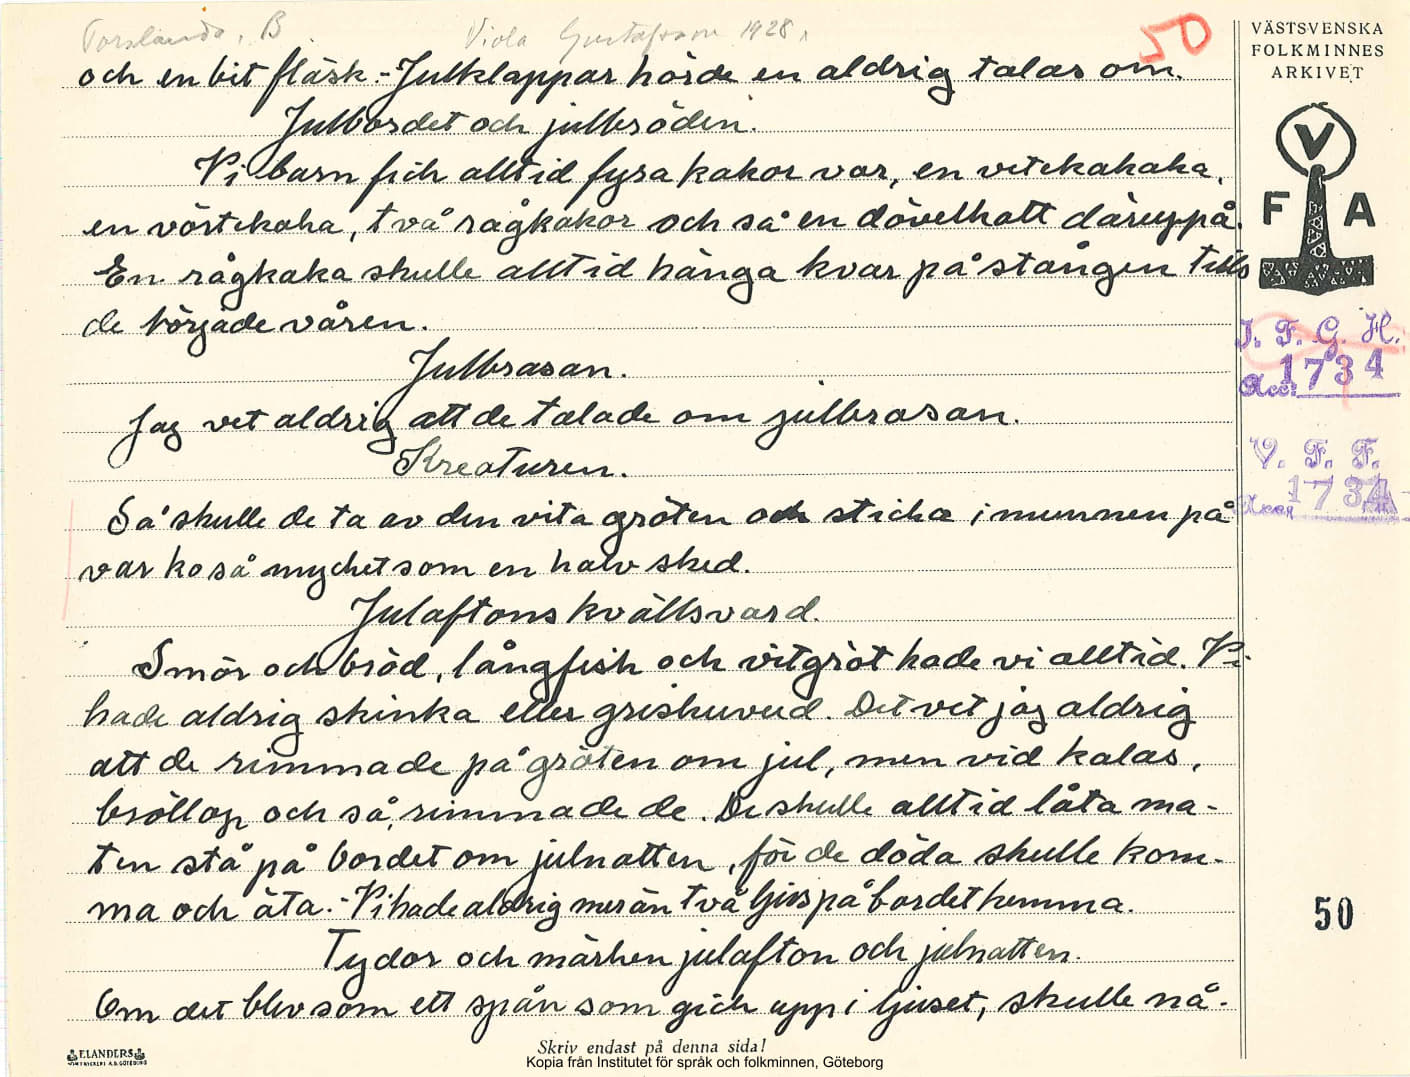 Torslanda, B. Viola Gustafsson 1928. 50
VÄSTSVENSKA
FOLKMINNES
ARKIVET
och en bit fläsk. - Julklappar hörde en aldrig talas om.
Julbordet och julbröden.
Vi barn fich alltid fyra kakor var, en vetekakaka,
en vörtekaka, två rågkakor och så en dövelhatt däruppå.
En rågkaka skulle alltid hänga kvar på stången tills
de började våren.
Julbrasan.
Jag vet aldrig att de talade om julbrasan.
Kreaturen.
Så skulle de ta av den vita gröten och sticka i munnen på
var ko så mychet som en halv sked.
Julaftonskvällsvard.
Smör och bröd, långfisk och vitgröt hade vi alltid. Vi
hade aldrig skinka eller grishuvud. Det vet jag aldrig
att de rimmade på gröten om jul, men vid kalas,
bröllop och så, rimmade de. De skulle alltid låta ma-
ten stå på bordet om julnatten, för de döda skulle kom-
ma och äta. - Vi hade aldrig mer än två ljus på bordet hemma.
Tydor och märken julafton och julnatten.
Om det blev som ett spån som gich upp i ljuset, skulle nå-
V
F A
I. F. G. H.
Acc: 1734
V. F. F.
Acc: 1734
50
ELANDERS
Skriv endast på denna sida!
Kopia från Institutet för språk och folkminnen, Göteborg